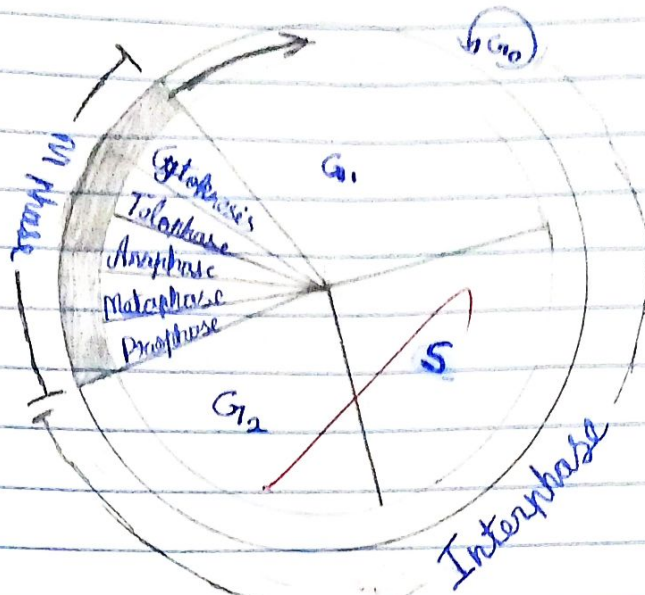 G0
M phase
G1
Cytokinesis
Telophase
Anaphase
Mataphase
Prophase
S
G2
Interphase